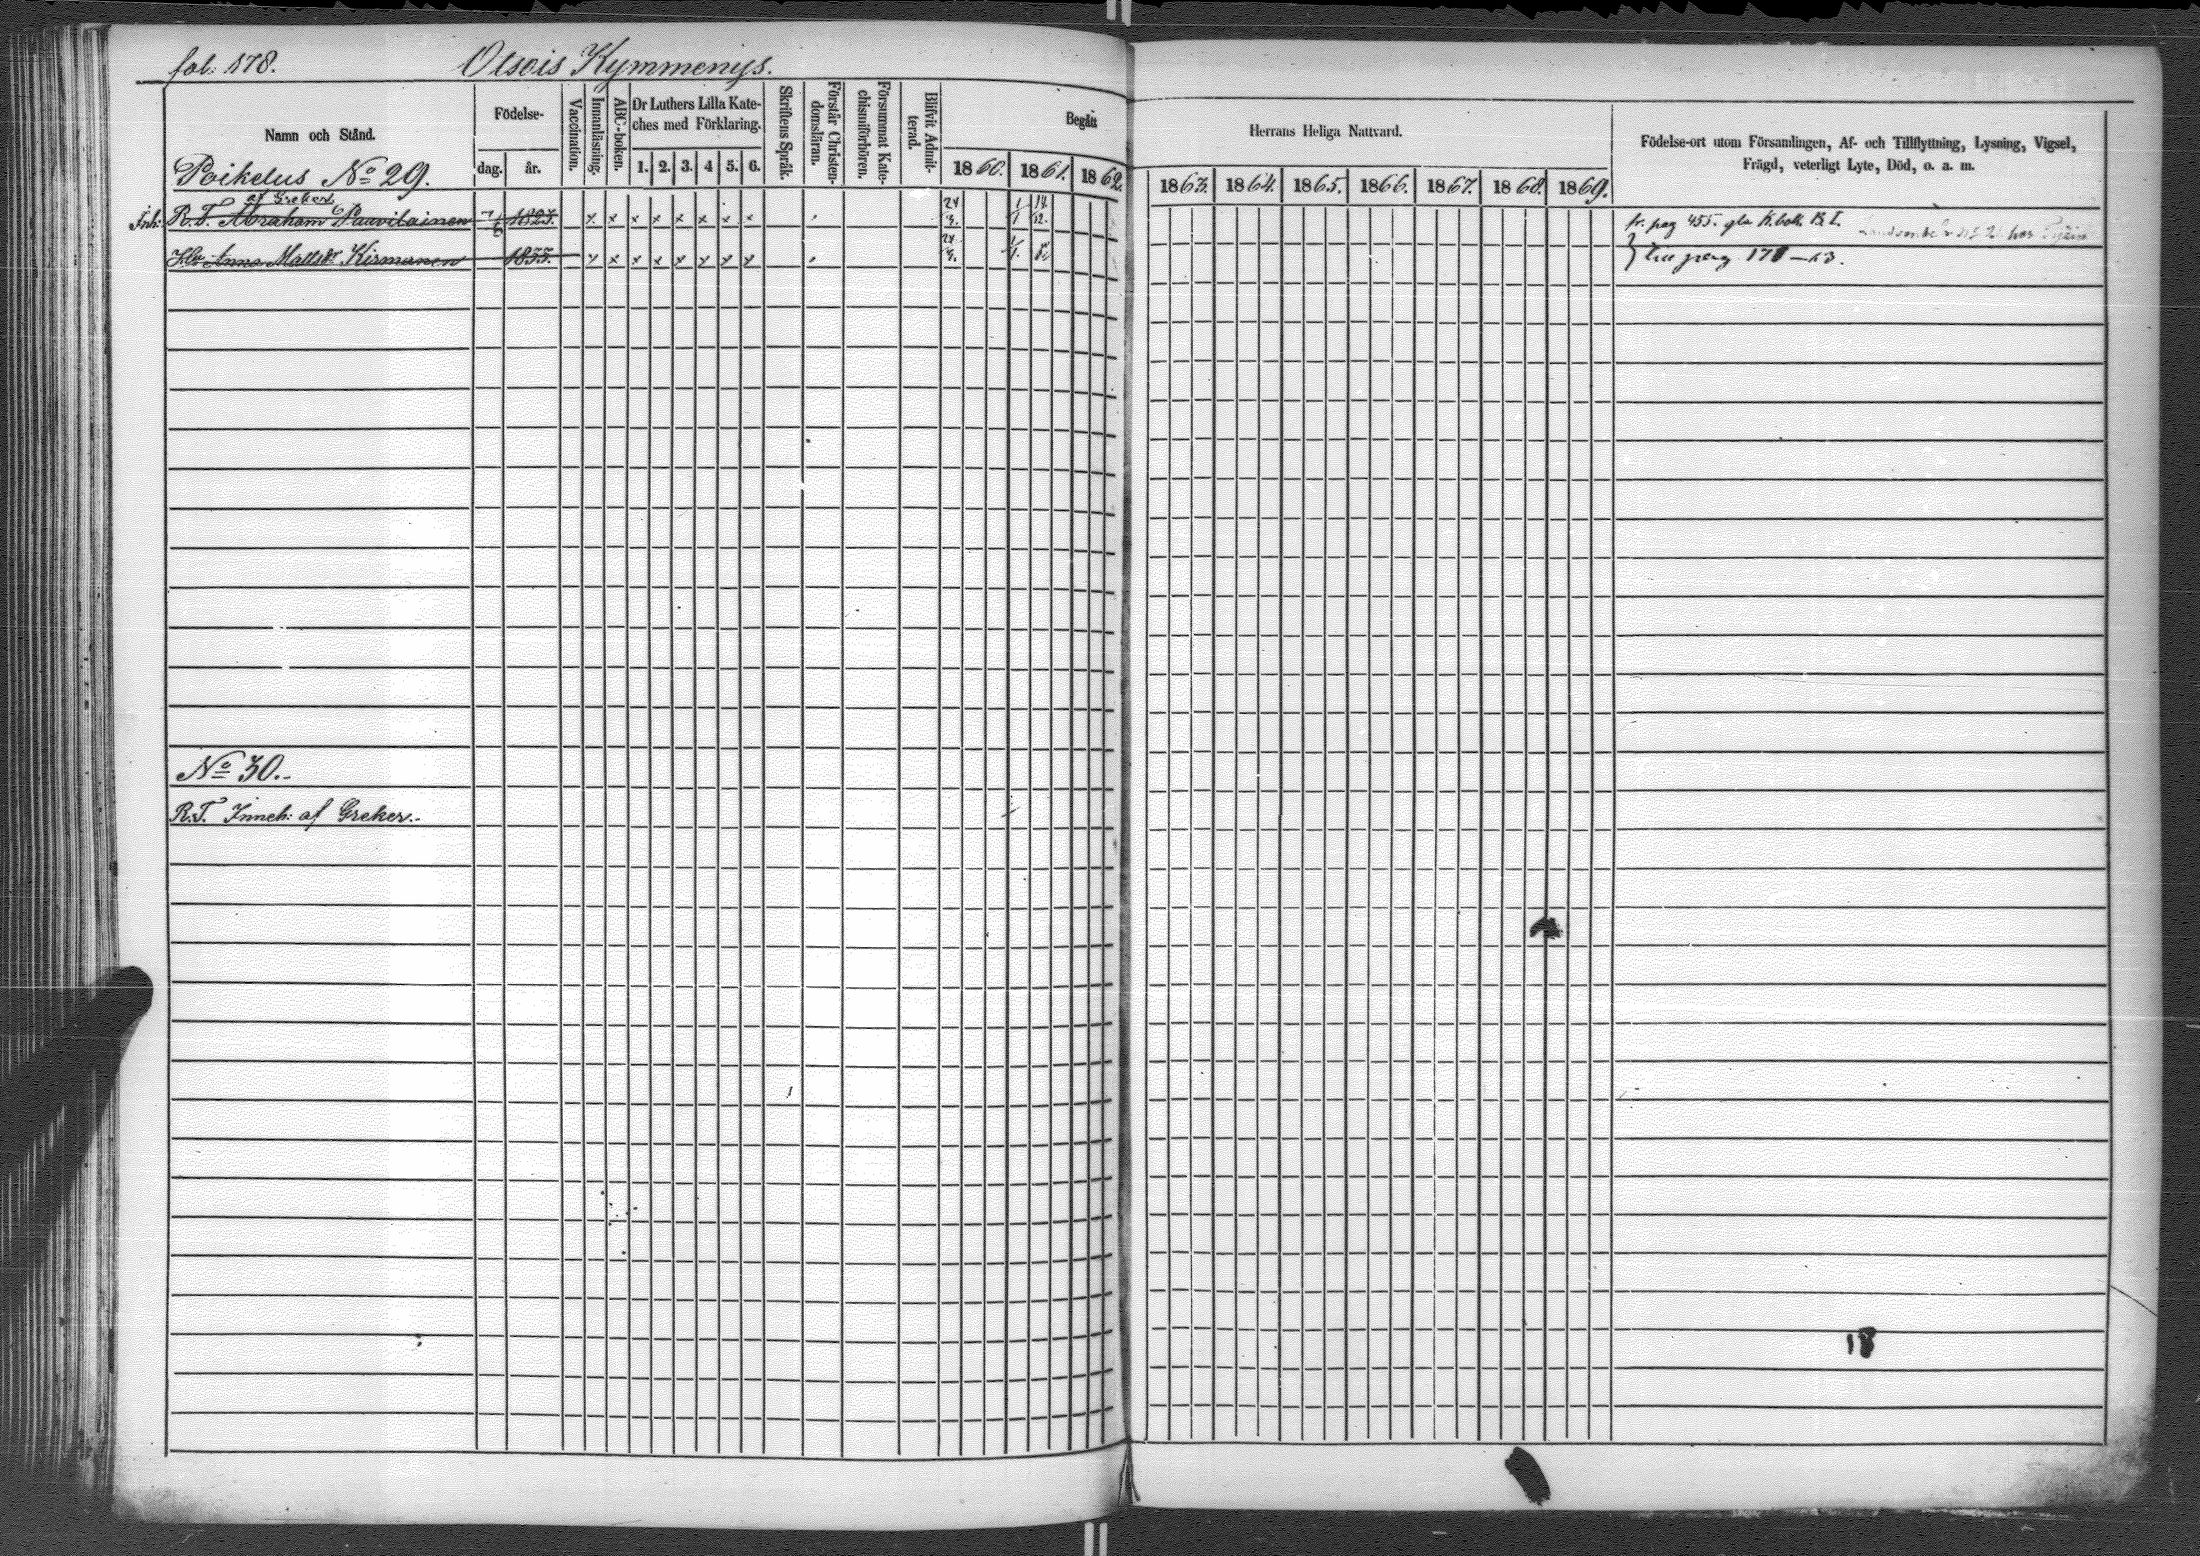 fol: 178. Olsois Kymmenys.
Namn och Stånd.
Födelse-
dag. år.
Vaccination.
Innanläsning.
ABC-boken.
Dr Luthers Lilla Kate-
ches med Förklaring.
1. 2. 3. 4 5. 6.
Skriftens Språk.
Förstår Christen-
domsläran.
Försummat Kate-
chismiförhören.
Blifvit Admit-
terad.
Begått
1860. 1861. 1862.
Herrans Heliga Nattvard.
1863. 1864. 1865. 1866. 1867. 1868. 1869.
Födelse-ort utom Församlingen, Af- och Tillflyttning, Lysning, Vigsel,
Frägd, veterligt Lyte, Död, o. a. m.
Poikelus No 29.
af Greker
Inh: R. T. Abraham Paavilainen 7/6 1827. x x x x x x x x 24/3. 1/1 14/12. fr. pag 455. gla K.bok. B I.
Hu Anna Mattsdr Kirmanen 1835. x x x x x x x x 24/3. 1/1. till pag 178—63.
No 30.
R. T. Inneh: af Greker.
18